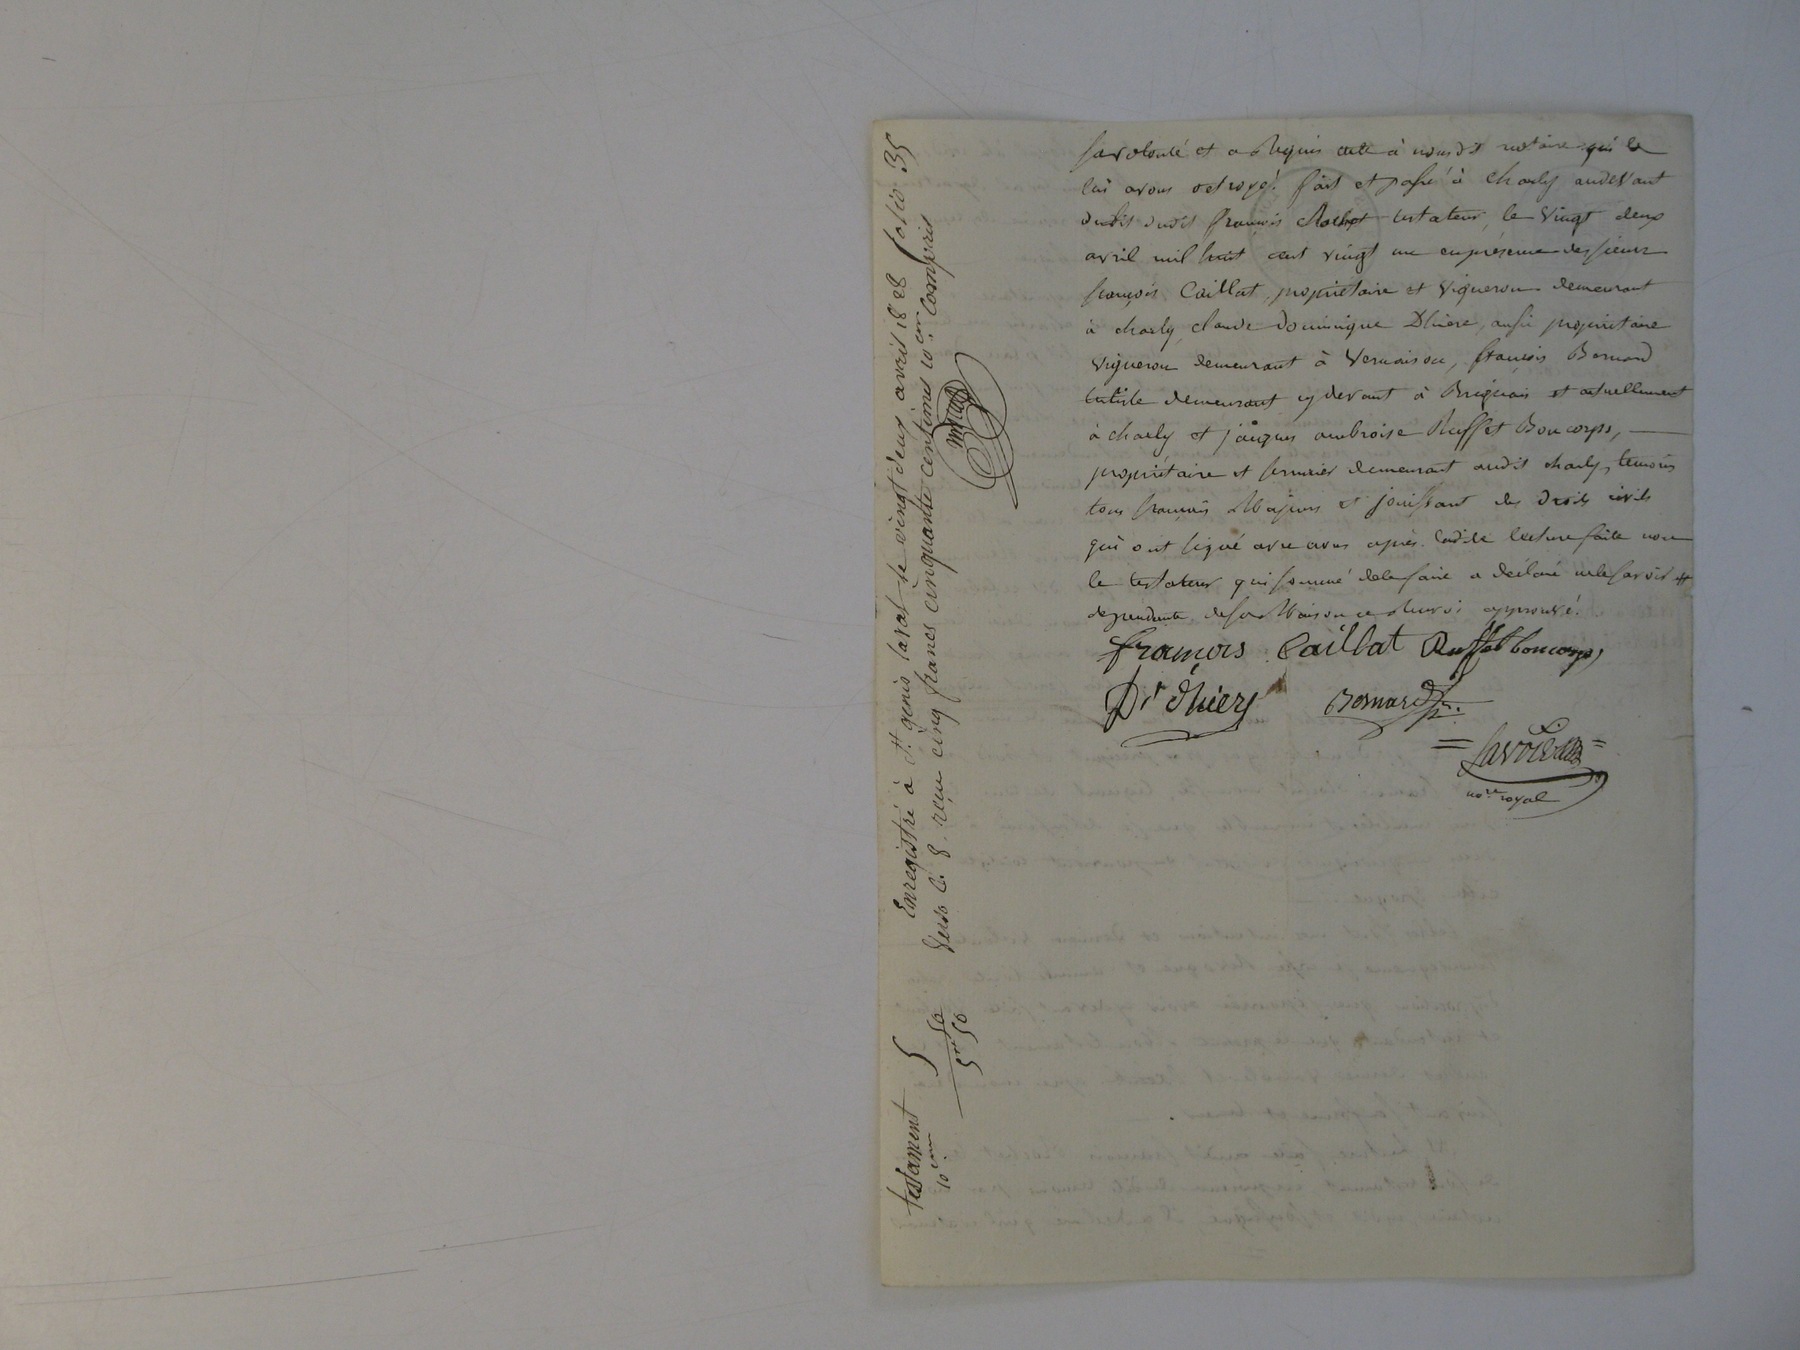 sa volonté et a Requis acte à nousdit notaire qui le
lui avons octroyé. fait et passé à charly audevant
dudit françois Rochet testateur, le vingt deux
avril mil huit cent vingt un en présence des sieurs
françois Caillat, propriétaire et vigneron demeurant
à charly, claude Dominique Dhiere, aussi propriétaire
vigneron demeurant à Vernaison, françois Bernard
demeurant cy devant à Brignais et actuellement
à charly et jacques ambroise Ruffet Boncorps,
propriétaire et fermier demeurant audit charly, temoins
tous français Majeurs et jouissant des droits civils
qui ont signé avec nous après ladite lecture faite non
le testateur qui sommé de le faire a déclaré ne le savoir ff
dependante de sa Maison ce Renvoi approuvé.
françois Caillat Ruffet boncorps,
Dq dhiery Bernard
Lavoie
nore royal
testament 5
10.eme 50
5fr 50
Enregistré à St genis laval le vingt deux avril 1828 folio 35
Verso Ce 8. reçu cinq francs cinquante centimes 10.eme Compris